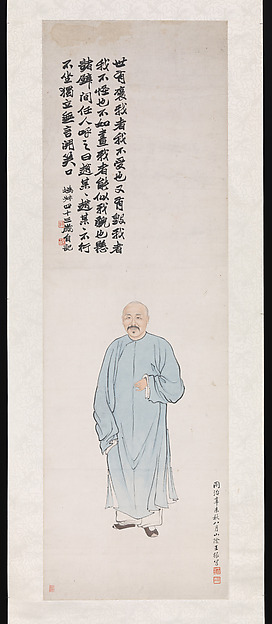 世有褒我者我不愛也又有毀我者
我不怪也不如畫我者能似我貌也懸
諸壁間任人呼之曰趙某趙某不行
不坐獨立無言開笑口
撝叔四十三歲自記
同治辛未秋八月山陰王㮣寫